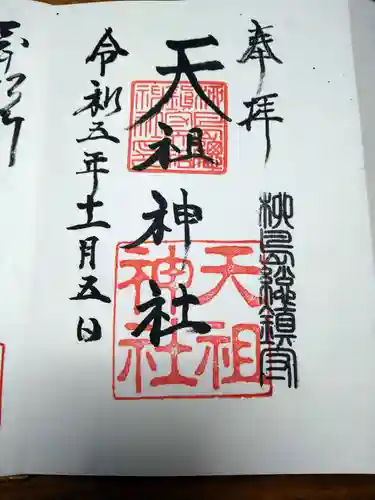 奉拝
柳島総鎮守
天祖神社
天祖神社
令和五年十一月五日